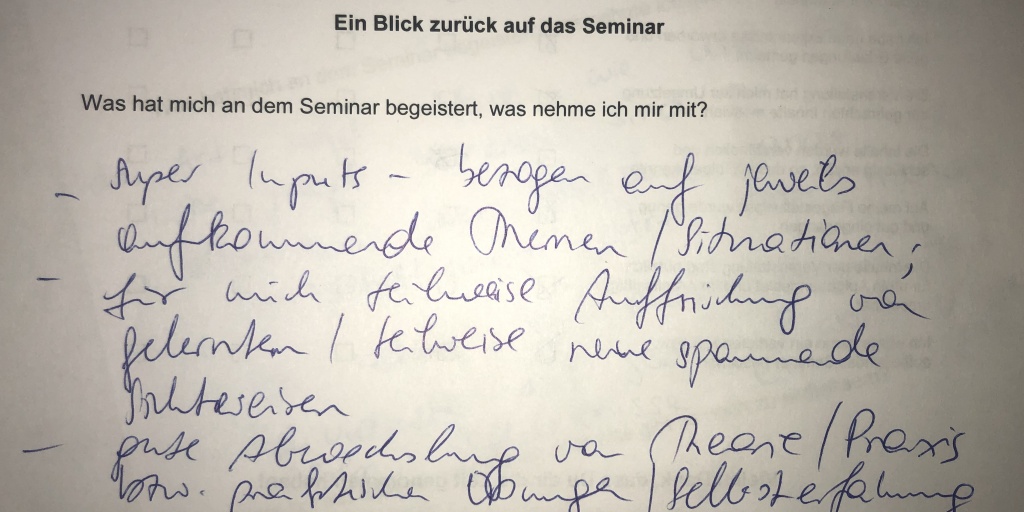 Ein Blick zurück auf das Seminar
Was hat mich an dem Seminar begeistert, was nehme ich mir mit?
- Super Inputs - bezogen auf jeweils
aufkommende Themen / Situationen,
- für mich teilweise Auffrischung von
gelerntem / teilweise neue spannende
Sichtweisen
- gute Abwechslung von Theorie / Praxis
bzw. praktischen Übungen / Selbsterfahrung